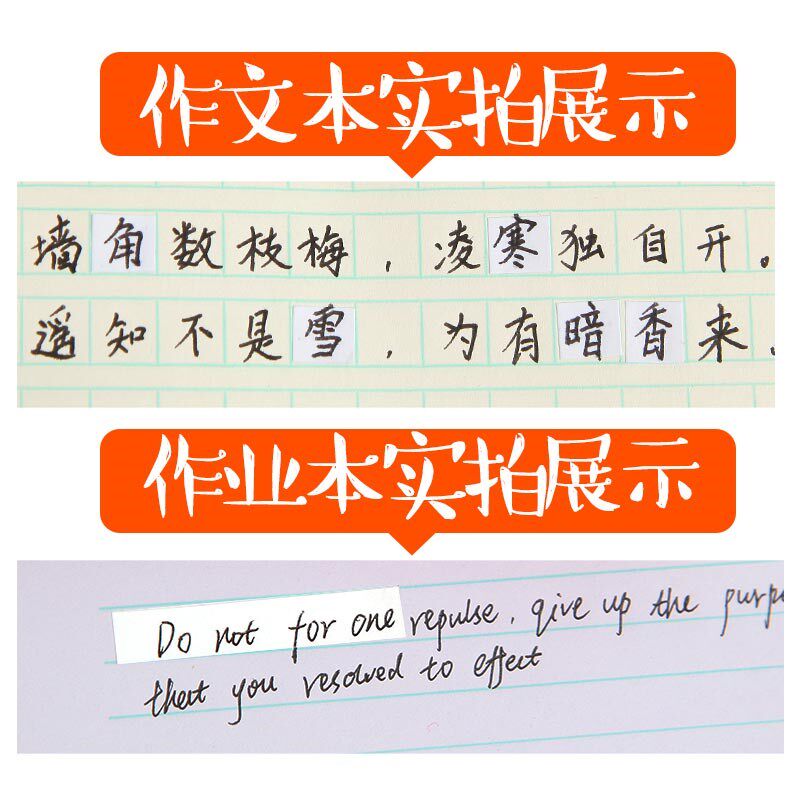 作文本实拍展示
墙角数枝梅，凌寒独自开。
遥知不是雪，为有暗香来.
作业本实拍展示
Do not for one repulse, give up the purp
that you resolved to effect